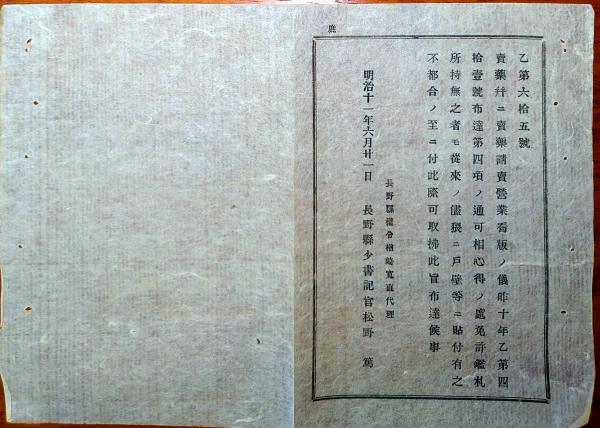 鹿
乙第六拾五號
賣藥幷ニ賣藥請賣營業看版ノ儀昨十年乙第四
拾壹號布達第四項ノ通可相心得ノ處免許鑑札
所持無之者モ從來ノ儘猥ニ戸壁等ニ貼付有之
不都合ノ至ニ付此際可取拂此旨布達候事
長野縣權令楢崎寬直代理
明治十一年六月廿一日 長野縣少書記官松野 篤